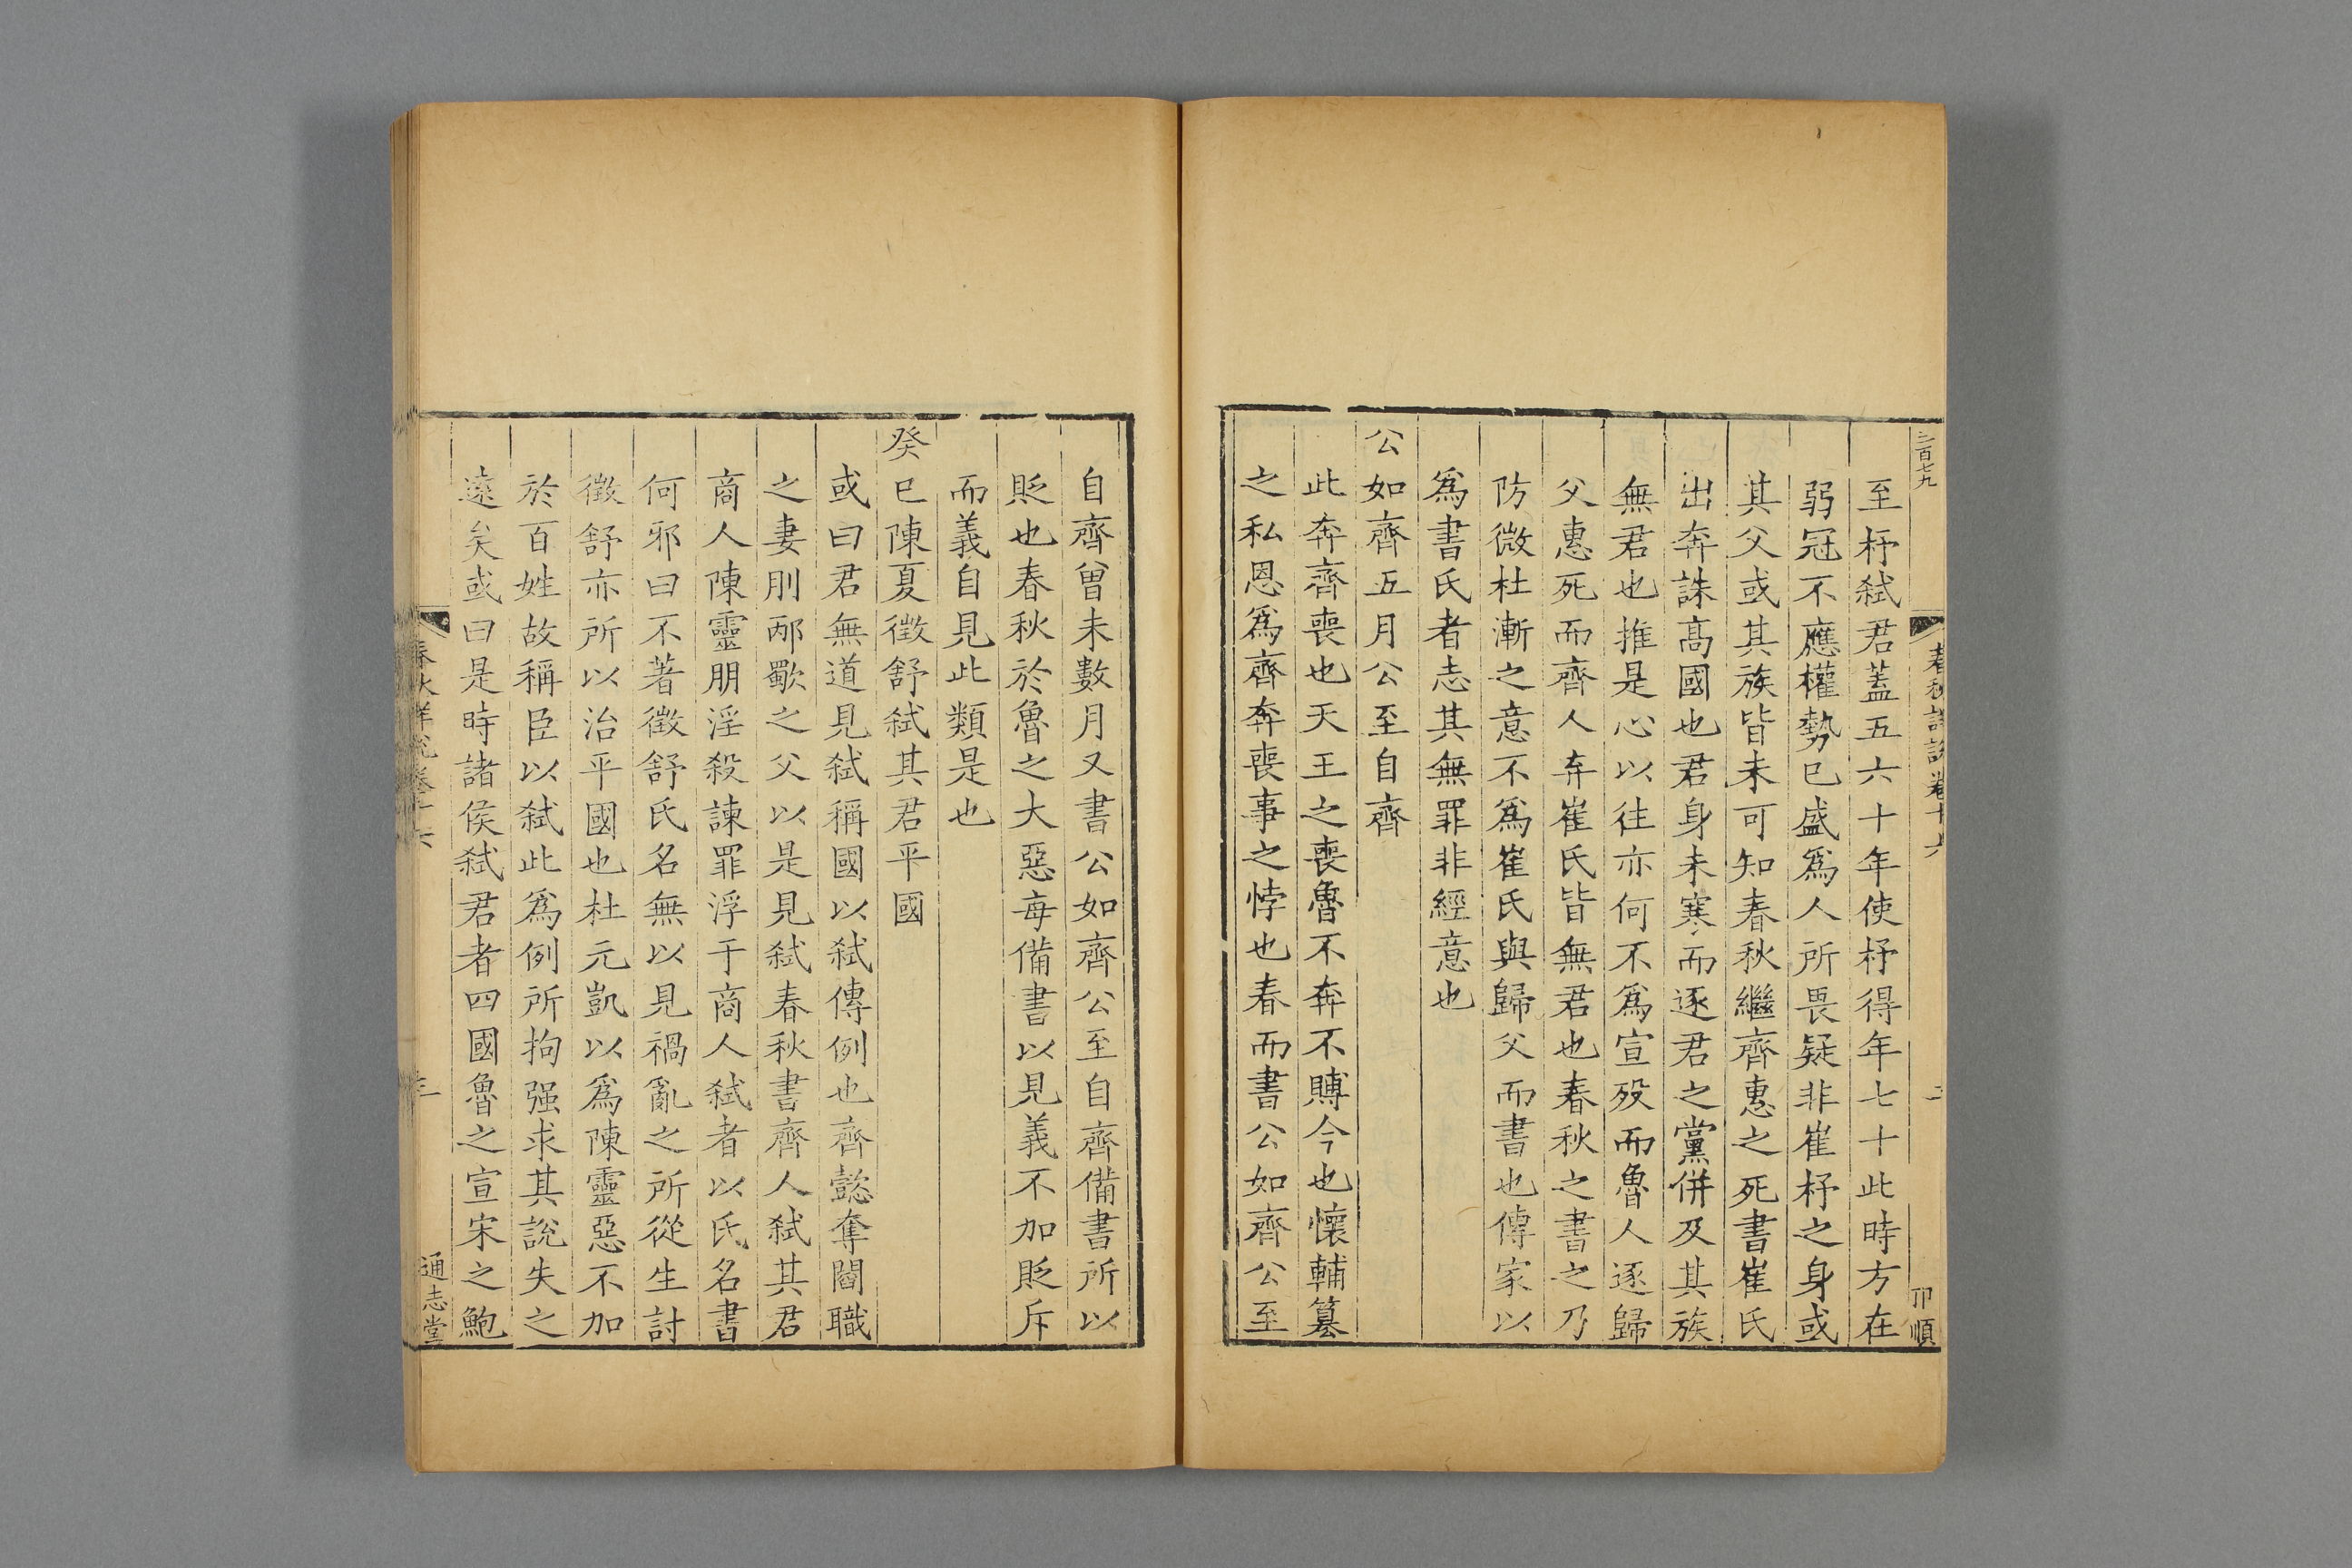 三百七九
春秋詳說卷十六
卭順
至杼弑君蓋五六十年使杼得年七十此時方在
弱冠不應權勢已盛爲人所畏疑非崔杼之身或
其父或其族皆未可知春秋繼齊惠之死書崔氏
出奔誅高國也君身未寒而逐君之黨併及其族
無君也推是心以往亦何不爲宣殁而魯人逐歸
父惠死而齊人弃崔氏皆無君也春秋之書之乃
防微杜漸之意不爲崔氏與歸父而書也傳家以
爲書氏者志其無罪非經意也
公如齊五月公至自齊
此奔齊喪也天王之喪魯不奔不賻今也懷輔簒
之私恩爲齊奔喪事之悖也春而書公如齊公至
自齊曾未數月又書公如齊公至自齊備書所以
貶也春秋於魯之大惡每備書以見義不加貶斥
而義自見此類是也
癸巳陳夏徵舒弑其君平國
或曰君無道見弑稱國以弑傳例也齊懿奪閻職
之妻刖邴歜之父以是見弑春秋書齊人弑其君
商人陳靈朋淫殺諫罪浮于商人弑者以氏名書
何邪曰不著徵舒氏名無以見禍亂之所從生討
徵舒亦所以治平國也杜元凱以爲陳靈惡不加
於百姓故稱臣以弑此爲例所拘强求其說失之
遠矣或曰是時諸侯弑君者四國魯之宣宋之鮑
春秋詳說卷十六
通志堂